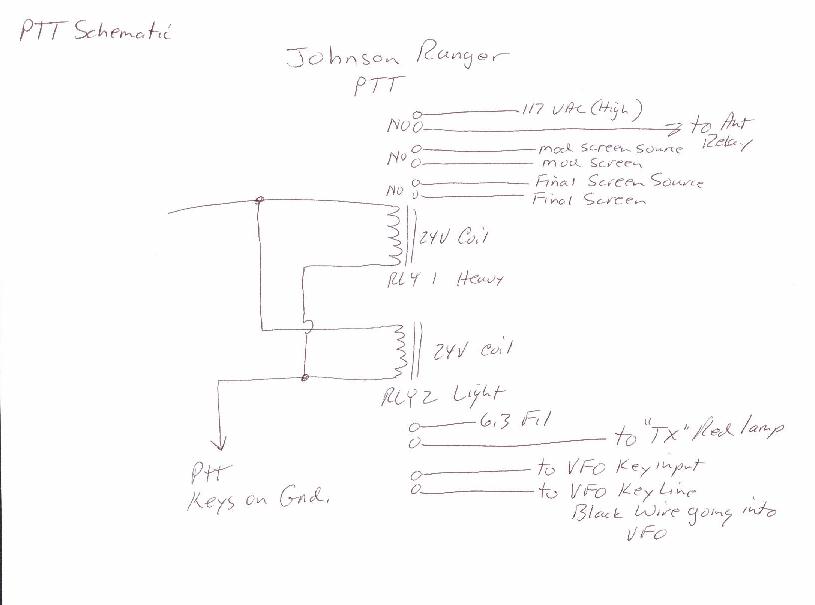 PTT Schematic
Johnson Ranger
PTT
117 VAC (High)
NO
to Ant
Relay
NO
mod screen source
mod screen
NO
Final Screen Source
Final Screen
24V Coil
RLY 1 Heavy
24V Coil
RLY 2 Light
6.3 Fil
to "TX" Red lamp
Ptt
Keys on Gnd.
to VFO Key input
to VFO Key Line
Black Wire going into
VFO